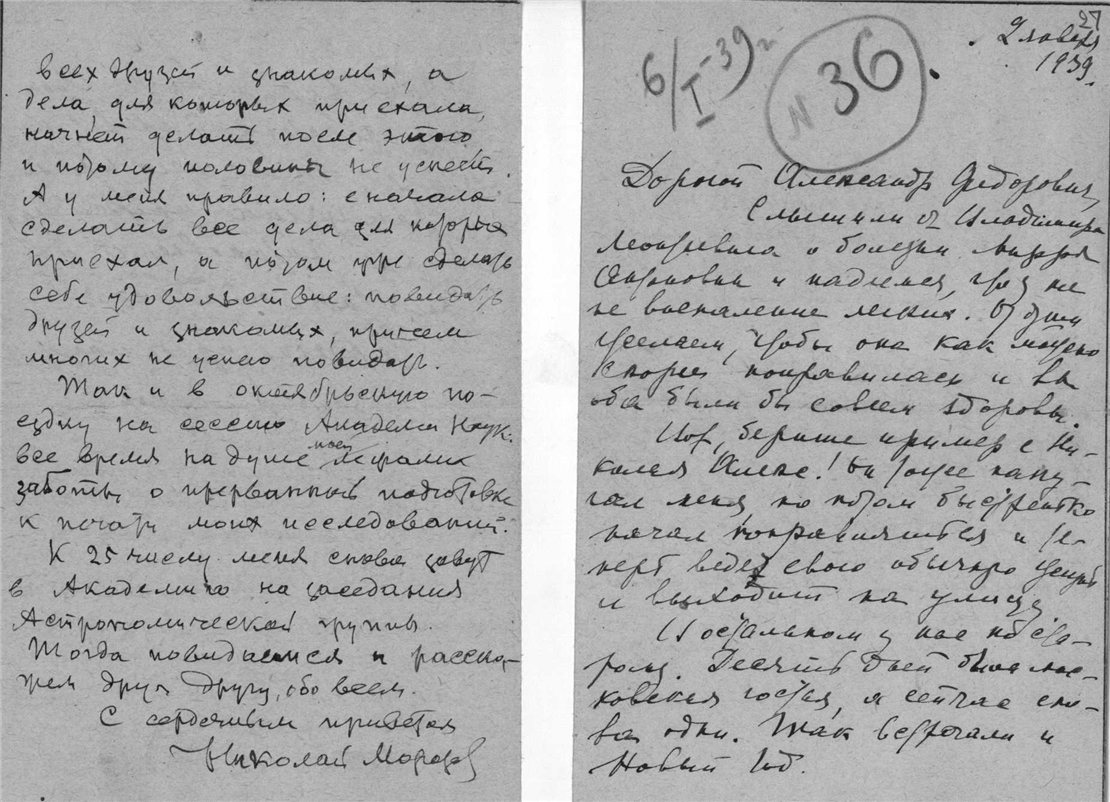 всех друзей и знакомых, а
дела, для которых приехала,
начнет делать после этого
и потому половины не успеет.
А у меня правило: сначала
сделать все дела для которых
приехал, а потом уже сделать
себе удовольствие: повидать
друзей и знакомых, причем
многих не успею повидать.
Так и в октябрьскую по-
ездку на сессию Академии Наук:
все время на душе моей
заботы о прерванной подготовке
к печати моих исследований.
К 25 числу меня снова зовут
в Академию на заседания
Астрономической группы.
Тогда повидаемся и расска-
жем друг другу обо всем.
С сердечным приветом
Николай Морозов
27
2 января
1939.
6/I-39 г.
N 36
Дорогой Александр Федорович,
Слышали от Владимира
о болезни
и надеемся, что это не
не воспаление легких. От души
желаем, чтобы она как можно
скорей поправилась и вы
оба были бы совсем здоровы.
Вот, берите пример с Ни-
колая Алекс.! Он тоже напу-
гал меня но потом быстренько
начал поправляться и те-
перь ведет свою обычную жизнь
и выходит на улицу
В остальном у нас все по ста-
рому. Десять дней была мос-
ковская гостья, а сейчас сно-
ва одни. Так встречали и
Новый Год.